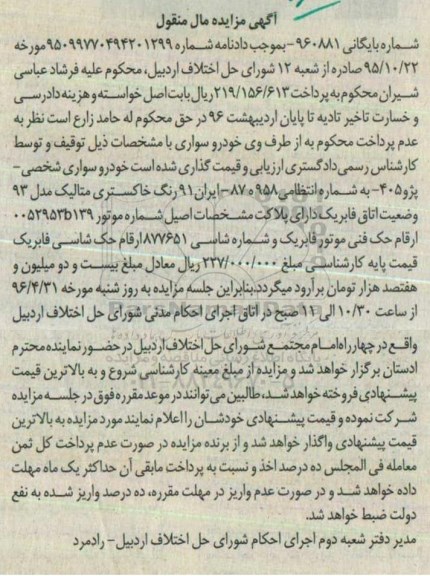 آگهی مزایده مال منقول
شماره بایگانی ۹۶۰۸۸۱ -بموجب دادنامه شماره ۹۵۰۹۹۷۷۰۴۹۴۲۰۱۲۹۹ مورخه
۹۵/۱۰/۲۲ صادره از شعبه ۱۲ شورای حل اختلاف اردبیل، محکوم علیه فرشاد عباسی
شیران محکوم به پرداخت ۲۱۹/۱۵۶/۶۱۳ ریال بابت اصل خواسته و هزینه دادرسی
و خسارت تاخیر تادیه تا پایان اردیبهشت ۹۶ در حق محکوم له حامد زارع است نظر به
عدم پرداخت محکوم به از طرف وی خودرو سواری با مشخصات ذیل توقیف و توسط
کارشناس رسمی دادگستری ارزیابی و قیمت گذاری شده است خودرو سواری شخصی -
پژو ۴۰۵- به شماره انتظامی ۹۵۸ ه ۸۷- ایران ۹۱ رنگ خاکستری متالیک مدل ۹۳
وضعیت اتاق فابریک دارای پلاکت مشخصات اصیل شماره موتور ۰۰۵۲۹۵۳b۱۳۹
ارقام حک فنی موتور فابریک و شماره شاسی ۸۷۷۶۵۱ ارقام حک شاسی فابریک
قیمت پایه کارشناسی مبلغ ۲۲۷/۰۰۰/۰۰۰ ریال معادل مبلغ بیست و دو میلیون و
هفتصد هزار تومان برآورد میگردد.بنابراین جلسه مزایده به روز شنبه مورخه ۹۶/۴/۳۱
از ساعت ۱۰/۳۰ الی ۱۱ صبح در اتاق اجرای احکام مدنی شورای حل اختلاف اردبیل
واقع در چهارراه امام مجتمع شورای حل اختلاف اردبیل در حضور نماینده محترم
دادستان برگزار خواهد شد و مزایده از مبلغ معینه کارشناسی شروع و به بالاترین قیمت
پیشنهادی فروخته خواهد شد، طالبین می توانند در موعد مقرره فوق در جلسه مزایده
شرکت نموده و قیمت پیشنهادی خودشان را اعلام نمایند مورد مزایده به بالاترین
قیمت پیشنهادی واگذار خواهد شد و از برنده مزایده در صورت عدم پرداخت کل ثمن
معامله فی المجلس ده درصد اخذ و نسبت به پرداخت مابقی آن حداکثر یک ماه مهلت
داده خواهد شد و در صورت عدم واریز در مهلت مقرره، ده درصد واریز شده به نفع
دولت ضبط خواهد شد.
مدیر دفتر شعبه دوم اجرای احکام شورای حل اختلاف اردبیل- رادمرد